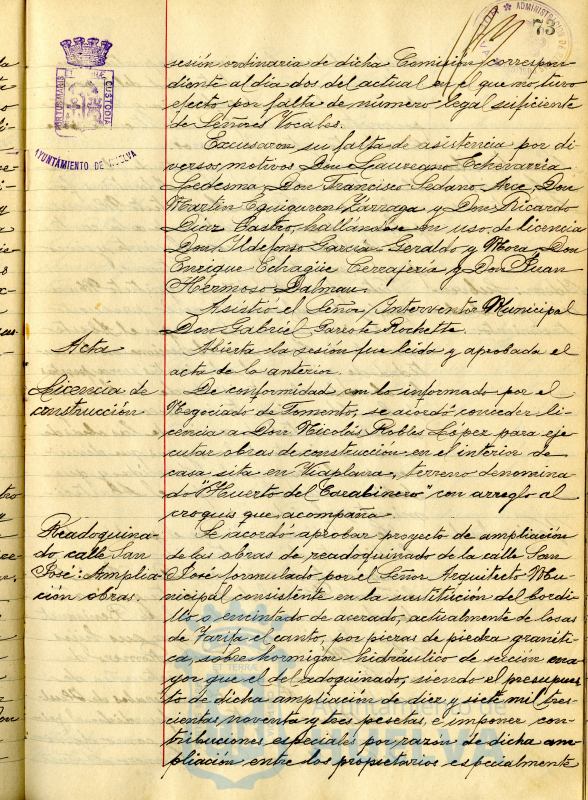 73
PORTUS MARIS
CUSTODIA
AYUNTAMIENTO DE HUELVA
ADMINISTRACION DE
sesión ordinaria de dicha Comisión correspon-
diente al dia dos del actual en el que no tuvo
efecto por falta de número legal suficiente
de Señores Vocales.
Excusaron su falta de asistencia por di-
versos motivos Don Laureano Echevarria
Ledesma, Don Francisco Sedano Arce, Don
Martin Eguiguren Yárzaga y Don Ricardo
Diaz Castro, hallándose en uso de licencia
Don Ildefonso Garcia-Geraldo y Moca, Don
Enrique Echagüe Cerrajeria y Don Juan
Hermoso Dalmau.
Asistió el Señor Interventor Municipal
Don Gabriel Garrote Rochette.
Acta
Abierta la sesión fue leida y aprobada el
acta de la anterior.
Licencia de
construcción
De conformidad con lo informado por el
Negociado de Fomento, se acordó conceder li-
cencia a Don Nicolás Robles López para eje-
cutar obras de construcción en el interior de
casa sita en Viaplana, terreno denomina-
do "Huerto del Carabinero" con arreglo al
croquis que acompaña.
Readoquina-
do calle San
José: Amplia-
ción obras.
Se acordó aprobar proyecto de ampliación
de las obras de readoquinado de la calle San
José formulado por el Señor Arquitecto Mu-
nicipal consistente en la sustitución del bordi-
llo o encintado de acerado, actualmente de losas
de Tarifa el canto, por piezas de piedra graniti-
ca, sobre hormigón hidráulico de sección ma-
yor que el del adoquinado, siendo el presupues-
to de dicha ampliación de diez y siete mil tres-
cientas noventa y dos pesetas, e imponer con-
tribuciones especiales por razón de dicha am-
pliación entre los propietarios especialmente
Ayuntamiento de
HUELVA